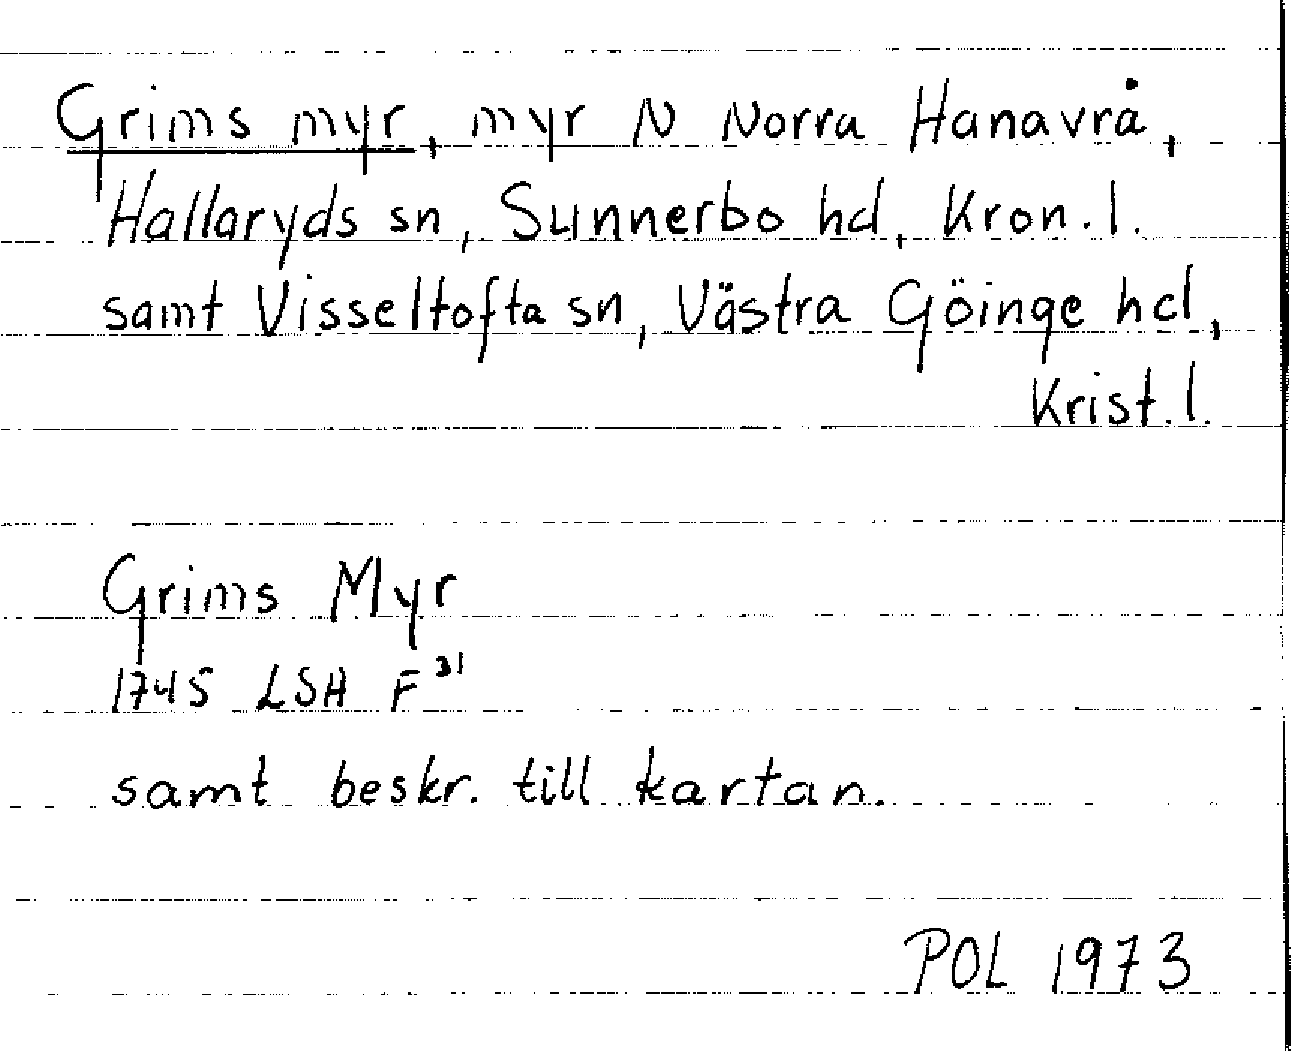 Grims myr, myr N Norra Hanavrå,
Hallaryds sn, Sunnerbo hd, Kron. l.
samt Visseltofta sn, Västra Göinge hd,
Krist. l.
Grims Myr
1745 LSA F³¹
samt beskr. till kartan.
POL 1973